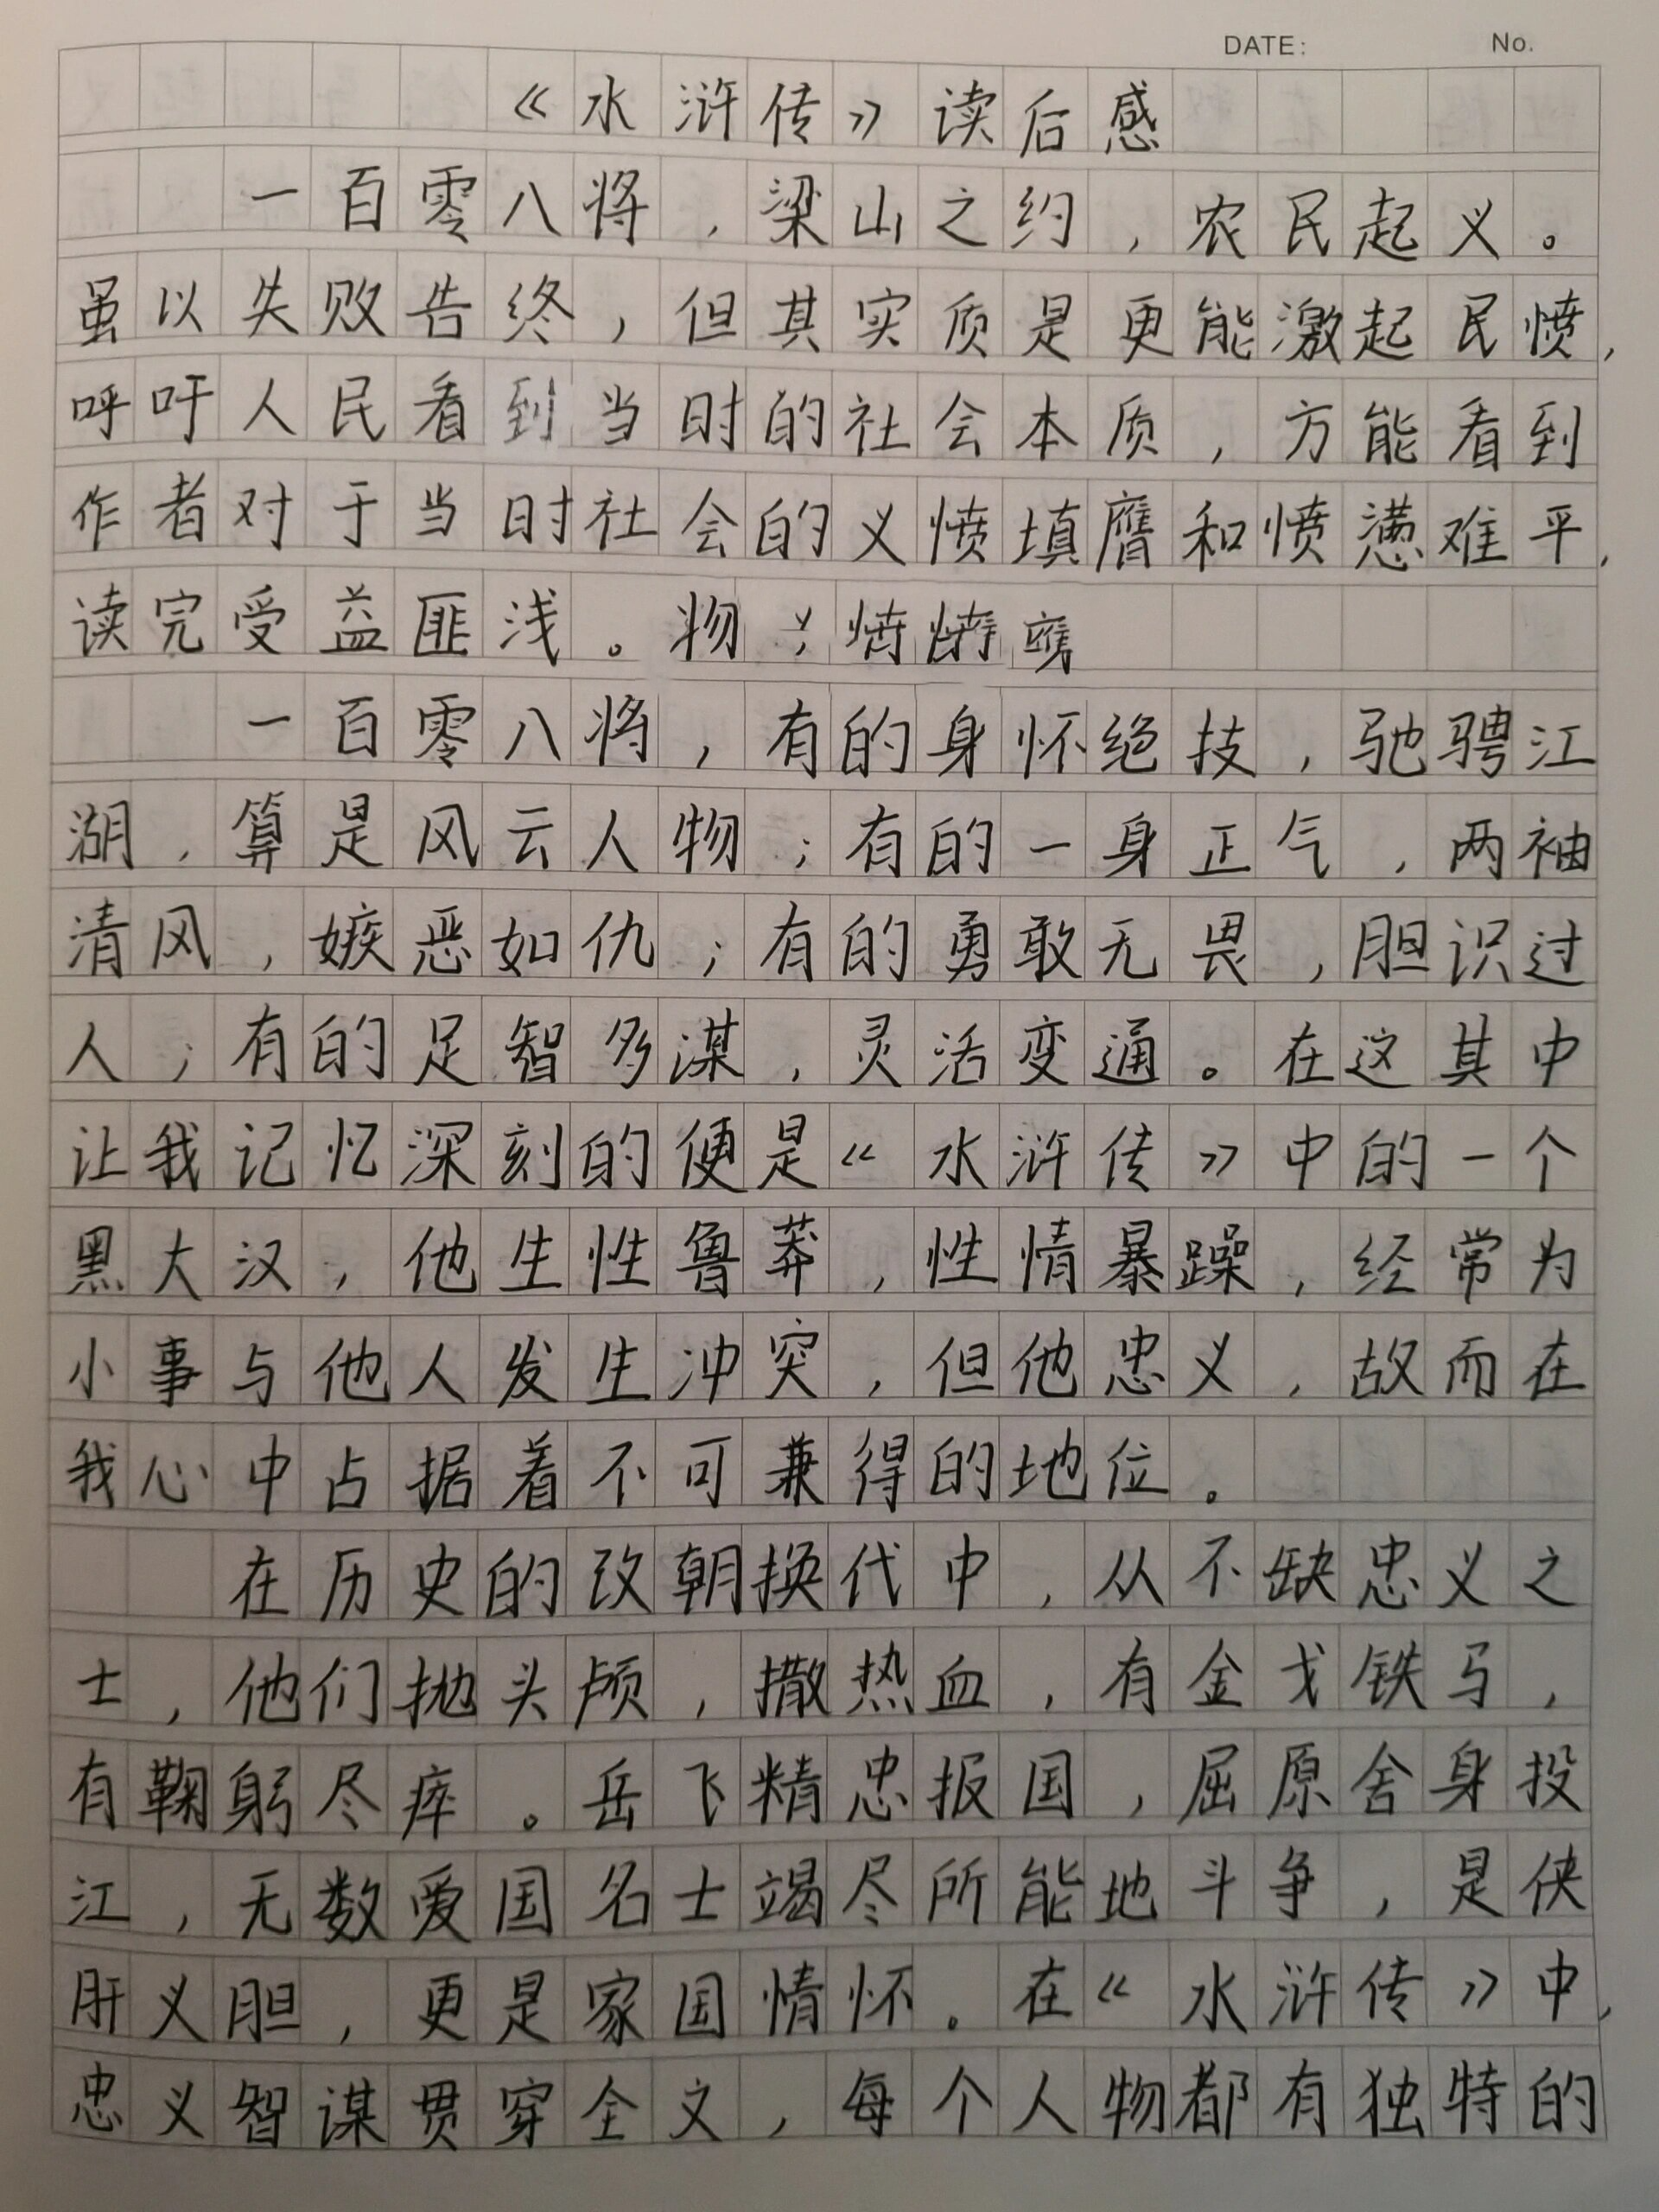 DATE: No.
《水浒传》读后感
一百零八将，梁山之约，农民起义。
虽以失败告终，但其实质是更能激起民愤，
呼吁人民看到当时的社会本质，方能看到
作者对于当时社会的义愤填膺和愤懑难平，
读完受益匪浅。物；愤
一百零八将，有的身怀绝技，驰骋江
湖，算是风云人物；有的一身正气，两袖
清风，嫉恶如仇；有的勇敢无畏，胆识过
人；有的足智多谋，灵活变通。在这其中
让我记忆深刻的便是《水浒传》中的一个
黑大汉，他生性鲁莽，性情暴躁，经常为
小事与他人发生冲突，但他忠义，故而在
我心中占据着不可兼得的地位。
在历史的改朝换代中，从不缺忠义之
士，他们抛头颅，撒热血，有金戈铁马，
有鞠躬尽瘁。岳飞精忠报国，屈原舍身投
江，无数爱国名士竭尽所能地斗争，是侠
肝义胆，更是家国情怀。在《水浒传》中，
忠义智谋贯穿全文，每个人物都有独特的